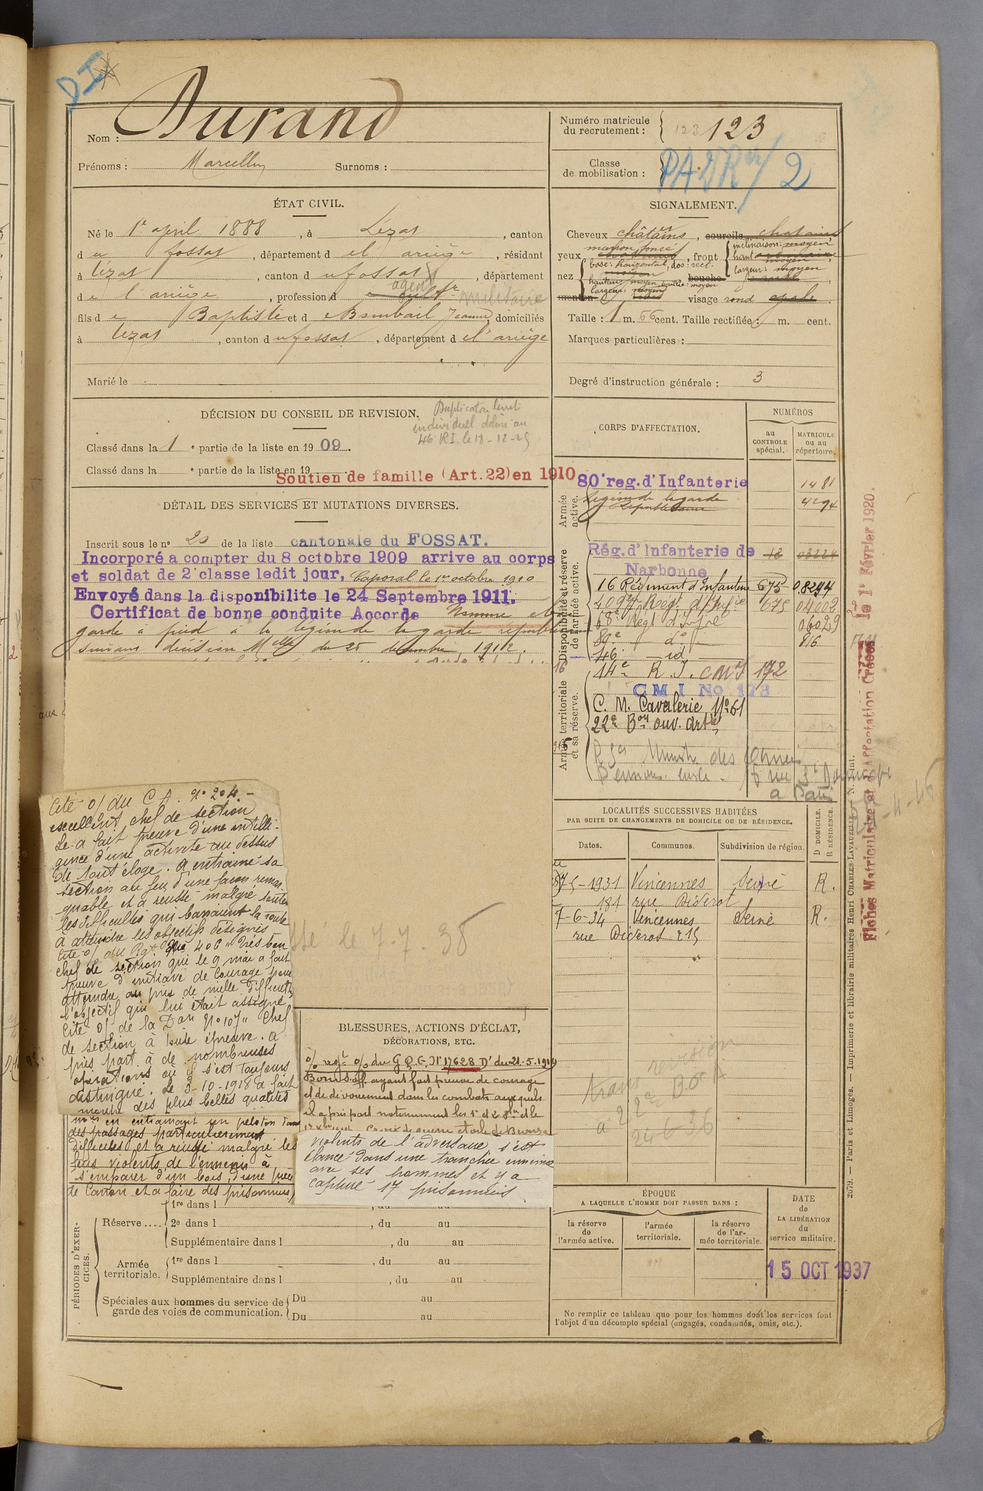 DI
Nom : Durand
Prénoms : Marcellin Surnoms :
Numéro matricule du recrutement : 123 123
Classe de mobilisation :
2
ÉTAT CIVIL.
Né le 1er april 1888, à Lézat, canton
du fossat, département de l'ariège, résidant
à lézat, canton du fossat, département
de l'ariège, profession d agent militaire
fils de Baptiste et de Bombail Jeanne domiciliés
à lezat, canton du fossat, département de l'ariège
Marié le
SIGNALEMENT.
Cheveux châtains, sourcils chatains
yeux marron foncé, front inclinaison: moyen
haut
largeur: moyen
nez base: horizontal, dos: rect.
hauteur moyen
largeur: moyen
bouche moyen
menton visage rond
Taille : 1 m. 66 cent. Taille rectifiée : m. cent.
Marques particulières :
Degré d'instruction générale : 3
DÉCISION DU CONSEIL DE REVISION.
Duplicata livret
individuel délivré au
46 RI. le 19-12-25
Classé dans la 1e partie de la liste en 1909
Classé dans la e partie de la liste en 19
Soutien de famille (Art. 22) en 1910
DÉTAIL DES SERVICES ET MUTATIONS DIVERSES.
Inscrit sous le n° 20 de la liste cantonale du FOSSAT.
Incorporé a compter du 8 octobre 1909 arrive au corps
et soldat de 2e classe ledit jour, Caporal le 1er octobre 1910
Envoyé dans la disponibilite le 24 Septembre 1911.
Certificat de bonne conduite Accorde Nommé
garde à pied à la légion de la garde républicaine
suivant décision Melle du 25 décembre 1912.
CORPS D'AFFECTATION.
NUMÉROS
au CONTROLE spécial.
MATRICULE ou au répertoire.
Armée active.
80e reg. d'Infanterie 1481
Légion de la garde républicaine 4294
Disponibilité et réserve de l'armée active.
Rég. d'Infanterie de Narbonne
16 Régiment d'Infanterie 675 08294
409e Régt d'Infie 678 04002
68e Regt d'Infie 06029
89e do 816
46 id
14e R. I. 172
Armée territoriale et sa réserve.
C M I No 178
C. M. Cavalerie No 61
22e Bon ouv. dart
Ministre des
à Paris
Fiches Matriculaire et d'Affectation Créées le 1er Février 1920.
LOCALITÉS SUCCESSIVES HABITÉES
PAR SUITE DE CHANGEMENTS DE DOMICILE OU DE RÉSIDENCE.
Dates. Communes. Subdivision de région. D DOMICILE. R RÉSIDENCE.
-5-1931 Vincennes Seine R.
181 rue Diderot
7-6-34 Vincennes Seine R.
rue Diderot 215
Cité O/ du C.A. No 204 -
excellent chef de section
a fait preuve d'une intelli-
gence d'une activité au dessus
de tout éloge. A entrainé sa
section au feu d'une façon remar-
quable et a réussi malgré toutes
les difficultés qui barraient la route
à atteindre les objectifs désignés
Cité O/ du Rgt 406 "Très bon
chef de section que le 9 mai a fait
preuve d'initiave de courage pour
atteindre au prix de mille difficultés
l'objectif qui lui était assigné
Cité O/ de la Don No 107 "Chef
de section à toute épreuve. a
pris part à de nombreuses
opérations où il s'est toujours
distingué. le 3-10-1918 a fait
montre des plus belles qualités
en entrainant un peloton dans
des passages particulièrement
difficiles et a réussi malgré les
feux violents de l'ennemi à
s'emparer d'un bois, d'une pièce
de Canon et a faire des prisonniers,
le 7.7.38
BLESSURES, ACTIONS D'ÉCLAT,
DÉCORATIONS, ETC.
du G.Q.G. No 17628 D" du 21-5-1916
ayant fait preuve de courage
et de dévouement dans les combats auxquels
il a pris part notamment les
Croix de guerre étoile de Bronze
violents de l'adversaire s'est
élancé dans une tranchée ennemie
avec ses hommes et y a
capturé 17 prisonniers.
trans revision
à 22e BOA
24-6-36
PÉRIODES D'EXERCICES.
Réserve .... 1re dans l , du au
2e dans l , du au
Supplémentaire dans l , du au
Armée territoriale. 1re dans l , du au
Supplémentaire dans l , du au
Spéciales aux hommes du service de garde des voies de communication. Du au
Du au
ÉPOQUE
A LAQUELLE L'HOMME DOIT PASSER DANS :
la réserve de l'armée active.
l'armée territoriale.
la réserve de l'armée territoriale.
DATE
de
LA LIBÉRATION
du
service militaire.
15 OCT 1937
Ne remplir ce tableau que pour les hommes dont les services font
l'objet d'un décompte spécial (engagés, condamnés, omis, etc.).
2679. — Paris et Limoges. — Imprimerie et librairie militaires Henri CHARLES-LAVAUZELLE.